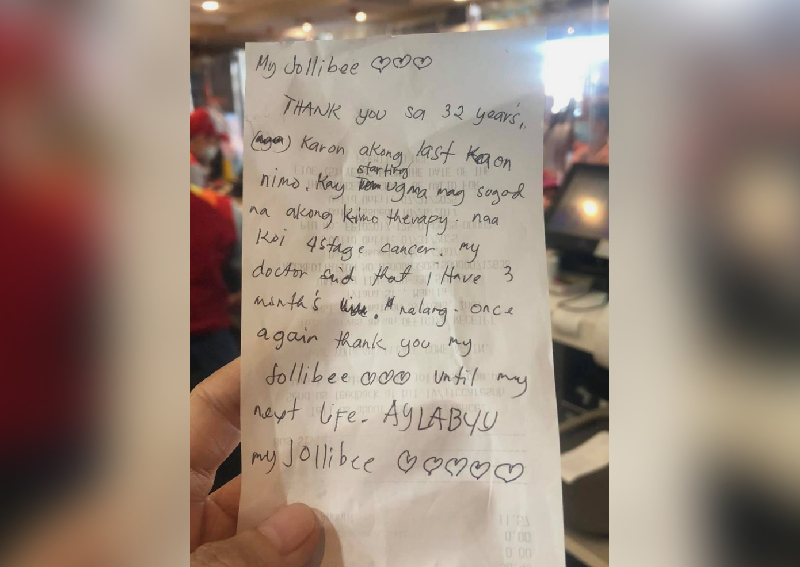 My Jollibee ♡♡♡
THANK you sa 32 years,.
Karon akong last Kaon
nimo. Kay starting ugma mag sugod
na akong kimo therapy. naa
Koi 4stage cancer. my
doctor said that I Have 3
month's nalang. once
again thank you my
Jollibee ♡♡♡ until my
next life. AYLABYU
my Jollibee ♡♡♡♡♡
11.57
0.00
0.00
0.00